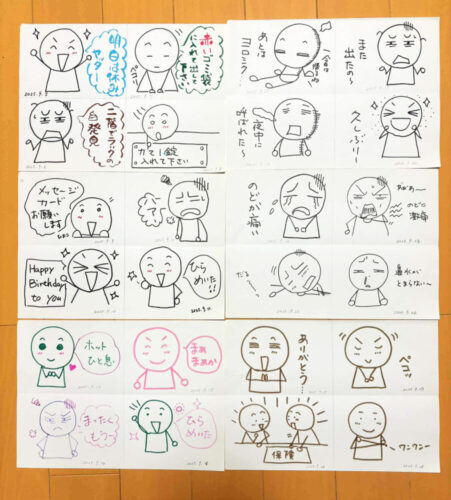 明日は休み
ヤッター
赤いゴミ袋
に入れて出して
下さい
あとは
ヨロシク
また
出たの〜
二階でラックの
自発見
カモ1錠
入れて下さい
夜中に
呼ばれた〜
久しぶり
メッセージ
カード
お願い
します
ハァ〜
のどが痛い
のどに
激痛
Happy
Birthday
to you
ひら
めいた!!
だる〜
鼻水が
とまらない〜
ホット
ひと息
まぁ
まぁか
ありがとう…
ペコッ
まったく
もうっ
ひら
めいた
保険
ワンワン